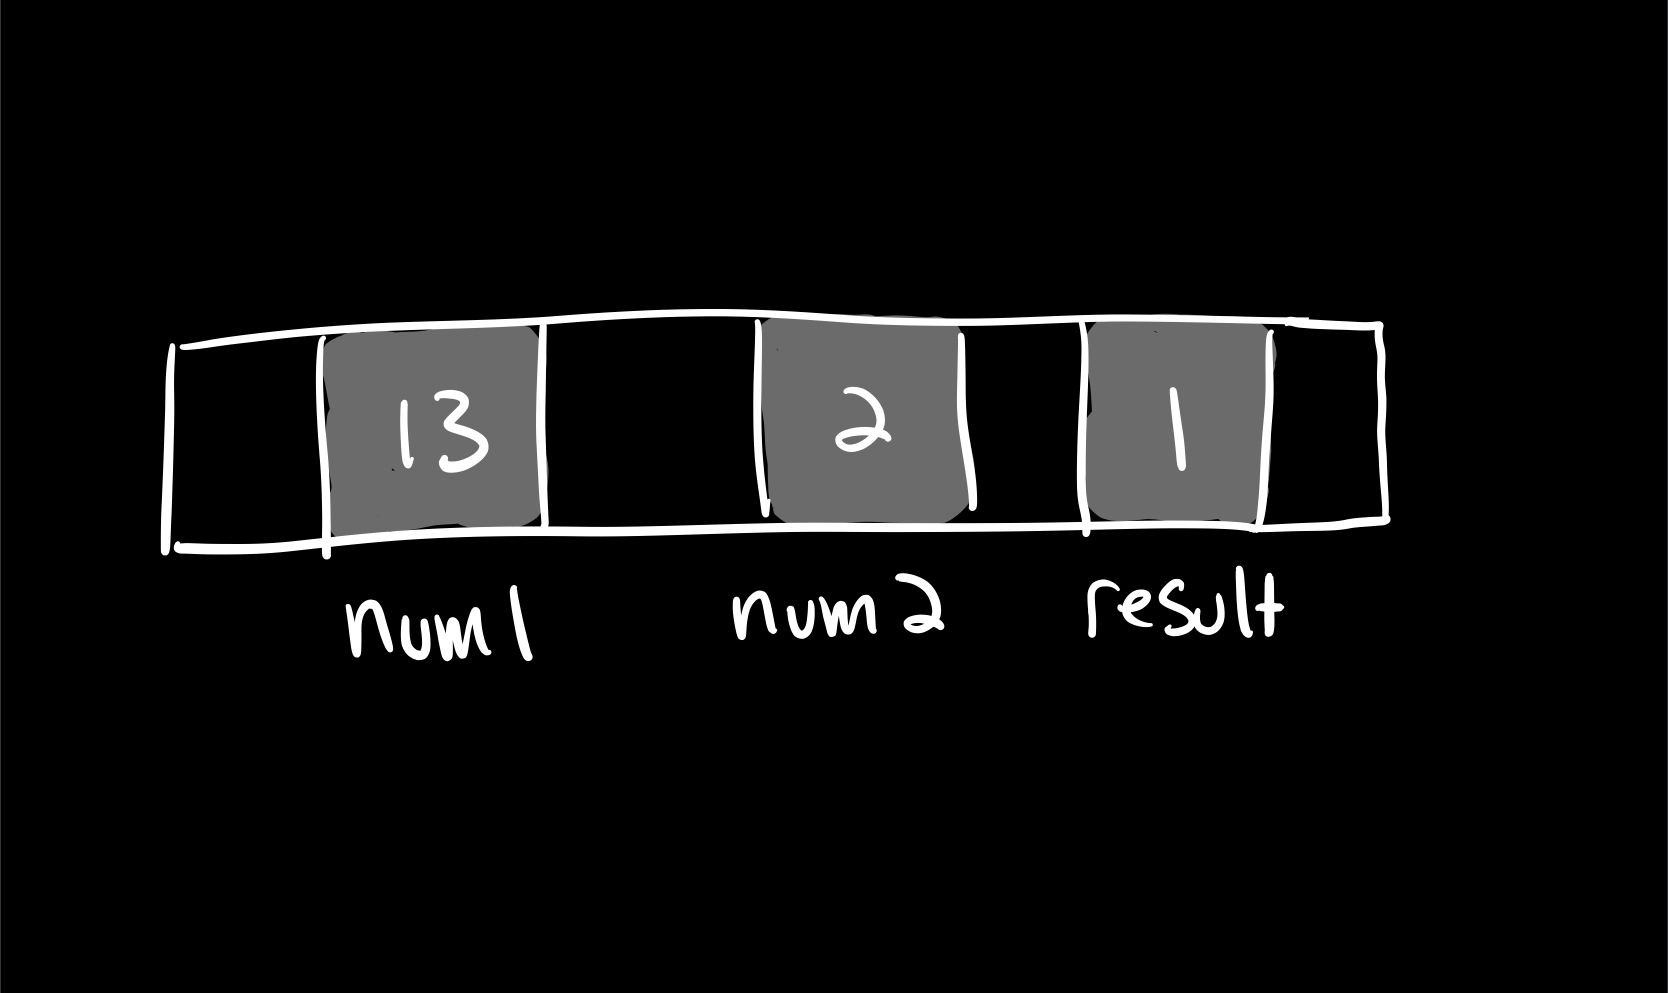 13 2 1
num1 num2 result